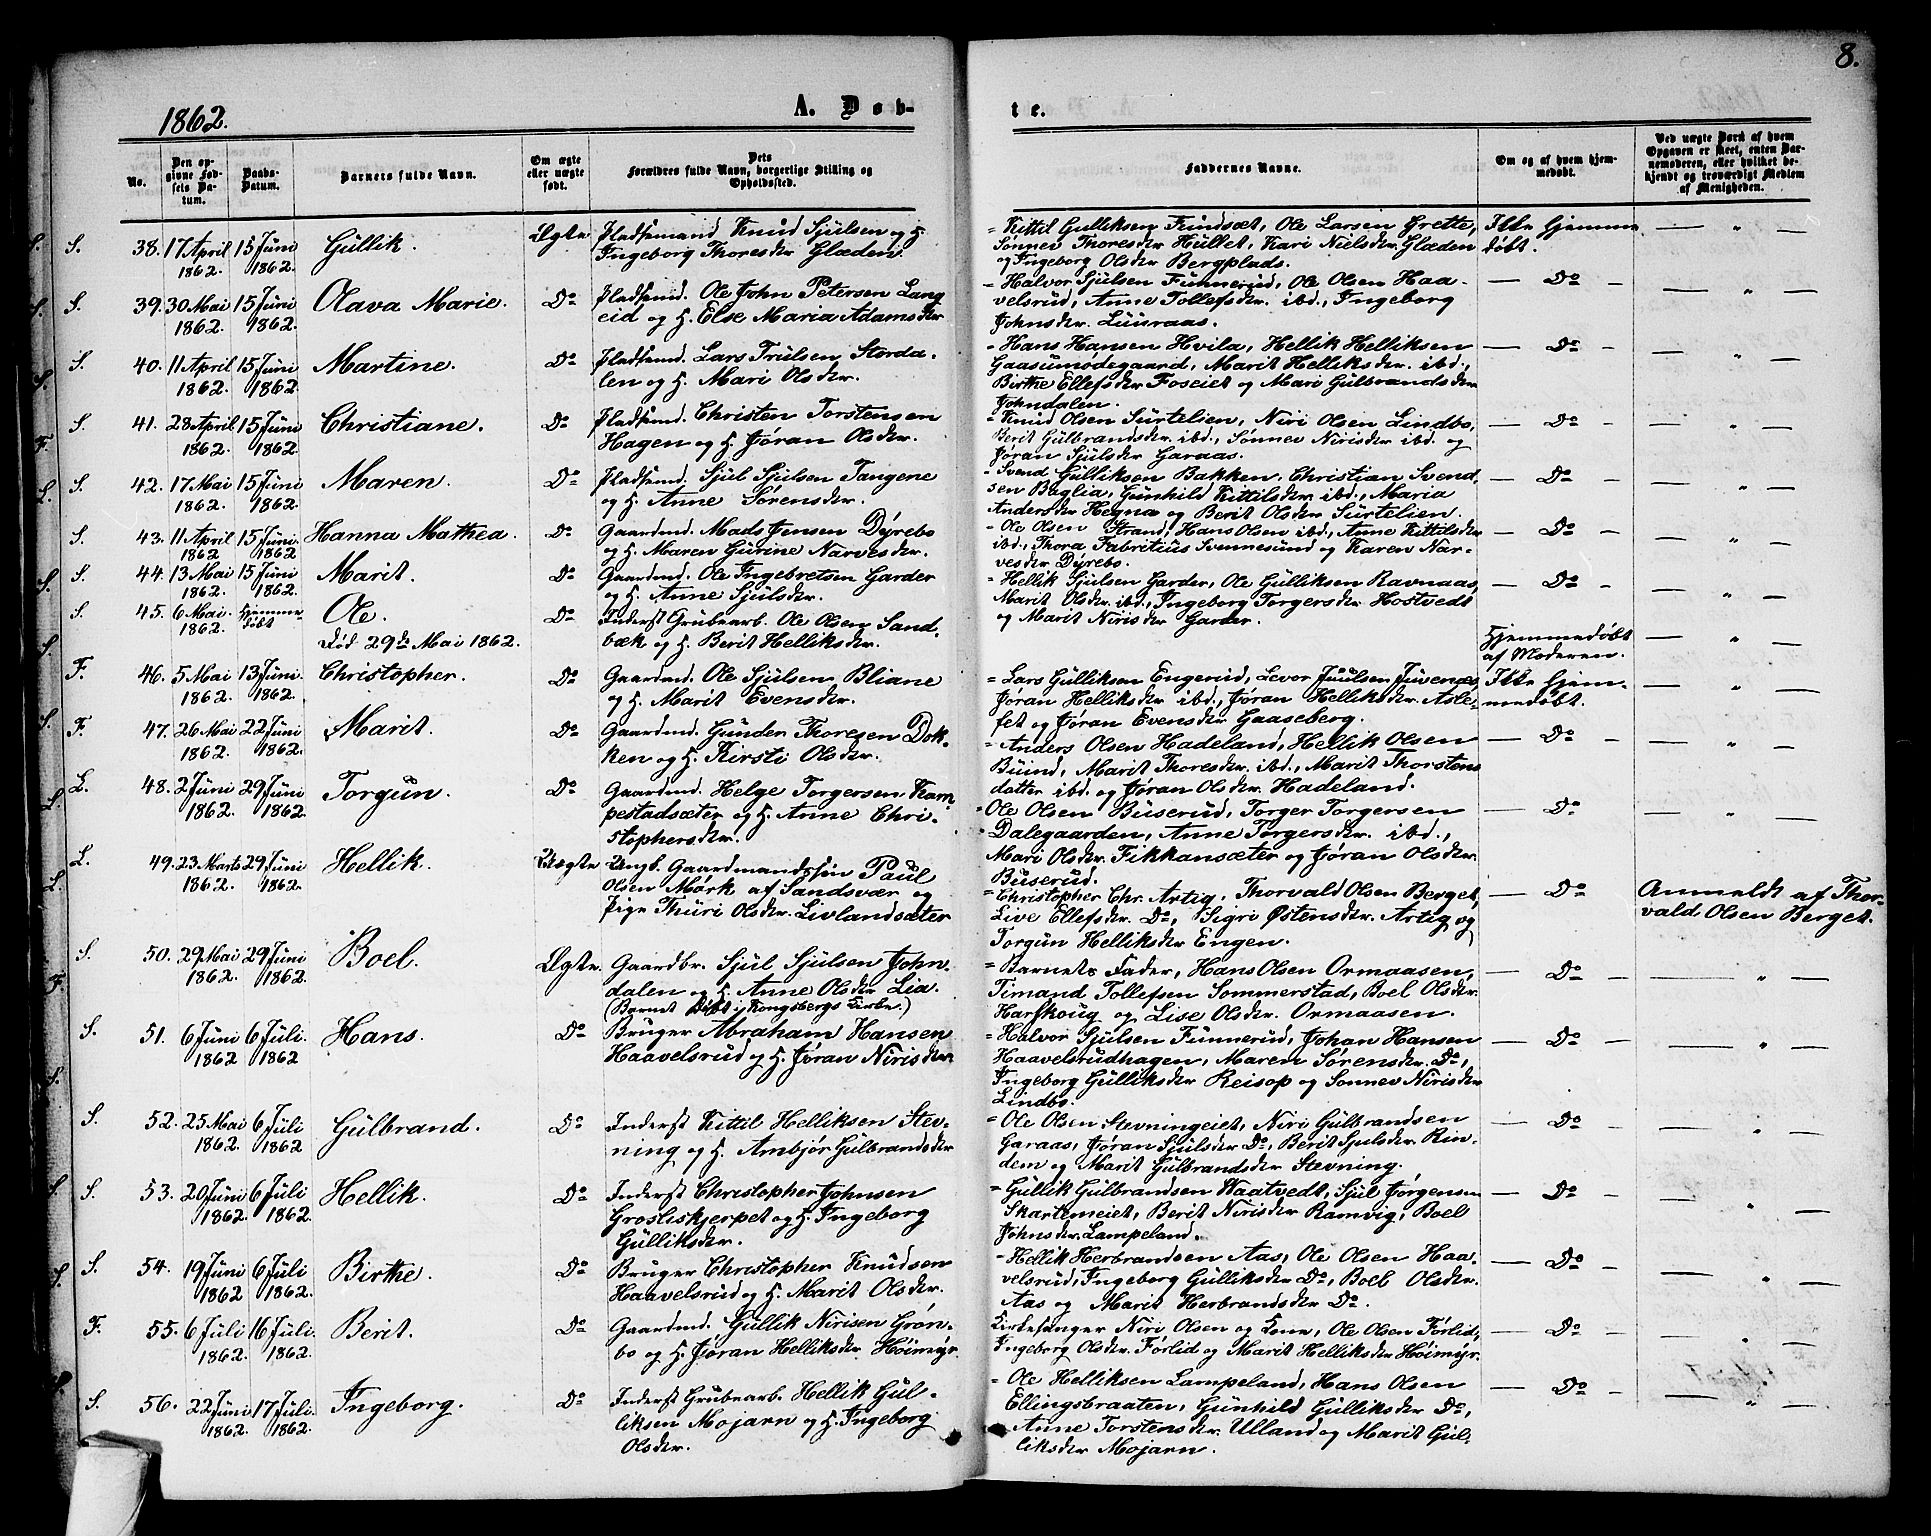 8.
1862.
A. Døb-
te.
No.
Den op-
givne Fød-
sels Da-
tum.
Daabs-
Datum.
Barnets fulde Navn.
Om ægte
eller uægte
født.
Dets
Forældres fulde Navn, borgerlige Stilling og
Opholdssted.
Faddernes Navne.
Om og af hvem hjem-
medøbt.
Ved uægte Børn af hvem
Opgaven er skeet, enten Bar-
nemoderen, eller hvilket be-
kjendt og troværdigt Medlem
af Menigheden.
S. 38. 17 April 15 Juni Gullik. Ægte Pladsemand Knud Sjulsen og H.
1862. 1862. Ingeborg Thoresdtr Glæden.
= Kittil Gulliksen Fundsæt, Ole Larsen Grette, Ikke Hjemme
Sønnev Thoresdtr Hullet, Kari Nielsdtr. Glæden døbt. — " —
og Ingeborg Olsdtr Bergplads.
S. 39. 30 Mai 15 Juni Olava Marie. Do Pladsemd. Ole John Petersen Lang
1862. 1862. eid og H. Else Maria Adamsdtr
= Halvor Sjulsen Funnerud, Ole Olsen Haa- — Do —
velsrud, Anne Tollefsdtr. ibd., Ingeborg — " —
Johnsdtr. Luuraas.
S. 40. 11 April 15 Juni Martine. Do Pladsemd. Lars Trulsen Storda-
1862. 1862. len og H. Mari Olsdtr.
= Hans Hansen Hvila, Hellik Helliksen — Do —
Gaasumødegaard, Marit Helliksdtr. ibd., — " —
Birthe Ellefsdtr Foseiet og Mari Gulbrandsdtr
Johndalen.
S. 41. 28 April 15 Juni Christiane. Do Pladsemd. Christen Torstensen
1862. 1862. Hagen og H. Jøran Olsdtr.
= Knud Olsen Surtelien, Niri Olsen Lindbo, — Do —
Berit Gulbrandsdtr. ibd., Sønnev Nirisdtr ibd. og — " —
Jøran Sjulsdtr Garaas.
S. 42. 17 Mai 15 Juni Maren. Do Pladsemd. Sjul Sjulsen Tangene
1862. 1862. og H. Anne Sørensdtr.
= Svend Gulliksen Bakken, Christian Svend, — Do —
sen Baglia, Gunhild Kittilsdtr. ibd., Maria — " —
Andersdtr Hegna og Berit Olsdtr Surtelien.
S. 43. 11 April 15 Juni. Hanna Mathea. Do Gaardmd. Mads Jensen Dyrebo
1862 1862 og H. Maren Gurine Narvesdtr.
= Ole Olsen Strand, Hans Olsen ibd., Anne Kittilsdtr — Do —
ibd., Thora Fabritius Svennesund og Karen Nar- — " —
vesdtr Dyrebo.
S. 44. 13 Mai 15 Juni Marit. Do Gaardmd. Ole Ingebretsen Garder
1862. 1862. og H. Anne Sjulsdtr.
= Hellik Sjulsen Garder, Ole Gulliksen Ravnaas, — Do —
Marit Olsdtr. ibd., Ingeborg Torgersdtr Hostvedt — " —
og Marit Nirisdtr Garder.
S. 45. 6 Mai Hjemme- Ole. Do Inderst Grubearb. Ole Olsen Sand-
1862. døbt Død 29de Mai 1862. bæk og H. Berit Helliksdtr.
Hjemmedøbt — " —
af Moderen.
F. 46. 5 Mai 13 Juni Christopher. Do Gaardmd. Ole Sjulsen Bliane
1862. 1862. og H. Marit Evensdtr.
= Lars Gulliksen Engerud, Levor Juulsen Juvenæs, Ikke hjem-
Jøran Helliksdtr ibd., Jøran Helliksdtr. Asle- medøbt. — " —
fet og Jøran Evensdtr Gaaseberg.
F. 47. 26 Mai 22 Juni Marit. Do Gaardmd. Gunder Thoresen Dok-
1862. 1862. ken og H. Kirsti Olsdtr.
= Anders Olsen Hadeland, Hellik Olsen — Do —
Buind, Marit Thoresdtr. ibd., Marit Thorstens — " —
datter ibd. og Jøran Olsdtr Hadeland.
L. 48. 2 Juni 29 Juni Torgun. Do Gaardmd. Helge Torgersen Kam
1862. 1862. pestadsæter og H. Anne Chri-
stophersdtr.
= Ole Olsen Buserud, Torger Torgersen — Do —
Dalegaarden, Anne Torgersdtr. ibd., — " —
Mari Olsdtr. Fikkansæter og Jøran Olsdtr.
Buserud.
L. 49. 23 Marts 29 Juni Hellik. Uægte Ungk. Gaardmandssøn Paul
1862. 1862. Olsen Mørk af Sandsvær og
Pige Thuri Olsdtr. Livlandsæter
= Christopher Chr. Artig, Thorvald Olsen Berget, — Do — Anmeldt af Thor-
Live Ellefsdtr. Do, Sigri Østensdtr. Artig og vald Olsen Berget.
Torgun Helliksdtr Engen.
S. 50. 29 Mai 29 Juni Boel. Ægte. Gaardbr. Sjul Sjulsen John-
1862. 1862. dalen og H. Anne Olsdtr Lia.
(Barnet Døbt i Kongsbergs Kirke.)
= Barnets Fader, Hans Olsen Ormaasen, — Do —
Timand Tollefsen Sommerstad, Boel Olsdtr. — " —
Harskoug og Lise Olsdtr. Ormaasen.
S. 51. 6 Juni 6 Juli. Hans. Do Bruger Abraham Hansen
1862 1862 Haavelsrud og H. Jøran Nirisdtr.
= Halvor Sjulsen Funnerud, Johan Hansen — Do —
Haavelsrudhagen, Maren Sørensdtr. Do, — " —
Ingeborg Gulliksdtr Reisop og Sønnev Nirisdtr
Lindbo.
S. 52. 25 Mai 6 Juli Gulbrand. Do Inderst Kittil Helliksen Stev-
1862. 1862 ning og H. Ambjør Gulbrandsdtr
= Ole Olsen Stevningeiet, Niri Gulbrandsen — Do —
Garaas, Jøran Sjulsdtr Do, Berit Sjulsdtr. Rin- — " —
dem og Marit Gulbrandsdtr. Stevning.
S. 53. 20 Juni 6 Juli Hellik. Do Inderst Christopher Johnsen
1862. 1862. Grosliskjerpet og H. Ingeborg
Gulliksdtr.
= Gullik Gulbrandsen Waatvedt, Sjul Jørgensen — Do —
Skartemeiet, Berit Nirisdtr Ramvig, Boel — " —
Johnsdtr. Lampeland.
S. 54. 19 Juni 6 Juli Birthe. Do Bruger Christopher Knudsen
1862 1862. Haavelsrud og H. Marit Olsdtr.
= Hellik Herbrandsen Aas, Ole Olsen Haa- — Do —
velsrud, Ingeborg Gulliksdtr Do, Boel Olsdtr. — " —
Aas og Marit Herbrandsdtr Do.
F. 55. 6 Juli 16 Juli. Berit. Do Gaardmd. Gullik Nirisen Grøn-
1862. 1862. bo og H. Jøran Helliksdtr Høimyr.
Kirkesanger Niri Olsen og Kone, Ole Olsen Førlid, — Do —
Ingeborg Olsdtr. Førlid og Marit Helliksdtr Høimyr. — " —
S. 56. 22 Juni 17 Juli. Ingeborg. Do Inderst Grubearb. Hellik Gul-
1862. 1862. liksen Mojarn og H. Ingeborg
Olsdtr.
= Ole Helliksen Lampeland, Hans Olsen — Do —
Ellingsbraaten, Gunhild Gulliksdtr Do, — " —
Anne Torstensdtr. Ulland og Marit Gul-
liksdtr Mojarn.